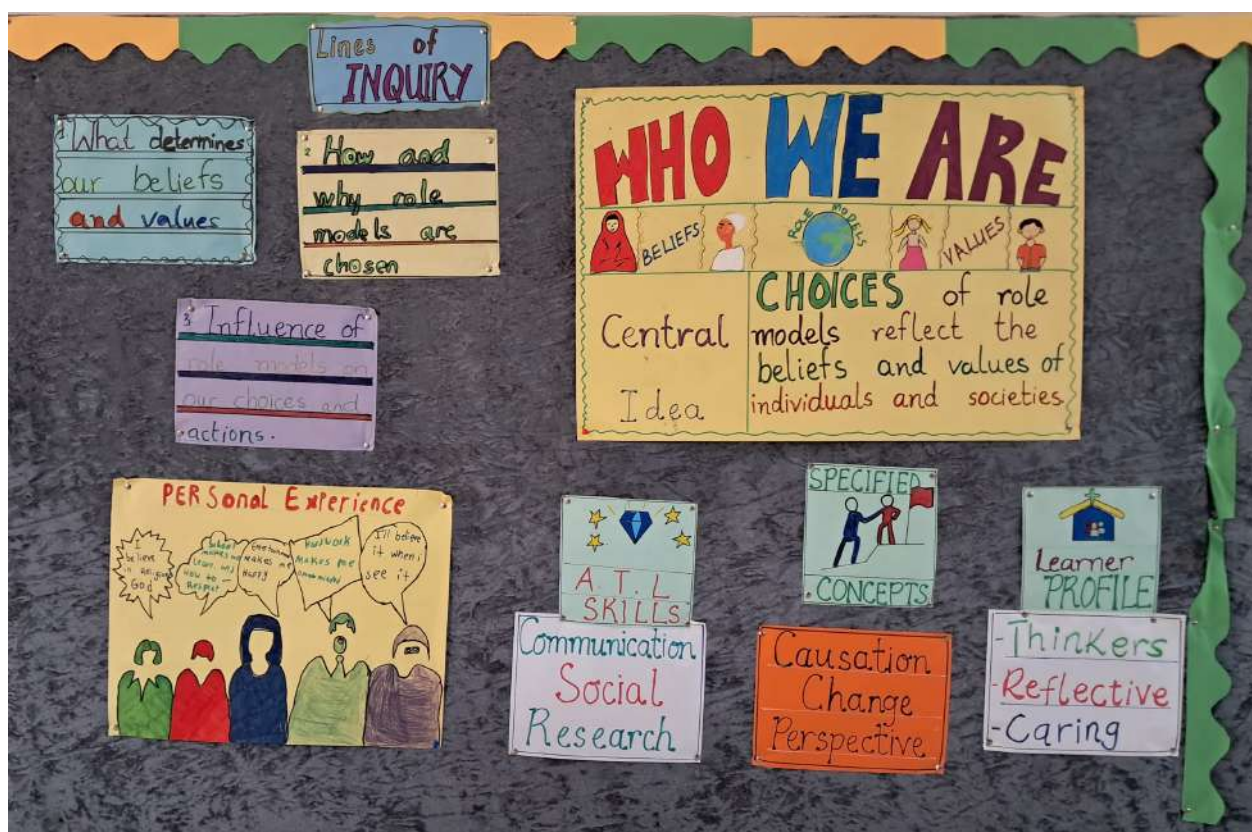 Lines of
INQUIRY
1 What determines
our beliefs
and values
2 How and
why role
models are
chosen
3 Influence of
role models on
our choices and
actions.
WHO WE ARE
BELIEFS
ROLE MODELS
VALUES
Central
Idea
CHOICES of role
models reflect the
beliefs and values of
individuals and societies
PERSonal Experience
I
believe
in Religion
God
makes me
Learn
HOW to
Respect
makes me
Happy
makes me
I'll believe
it when i
see it
A.T.L
SKILLS
Communication
Social
Research
SPECIFIED
CONCEPTS
Causation
Change
Perspective
Learner
PROFILE
-Thinkers
-Reflective
-Caring